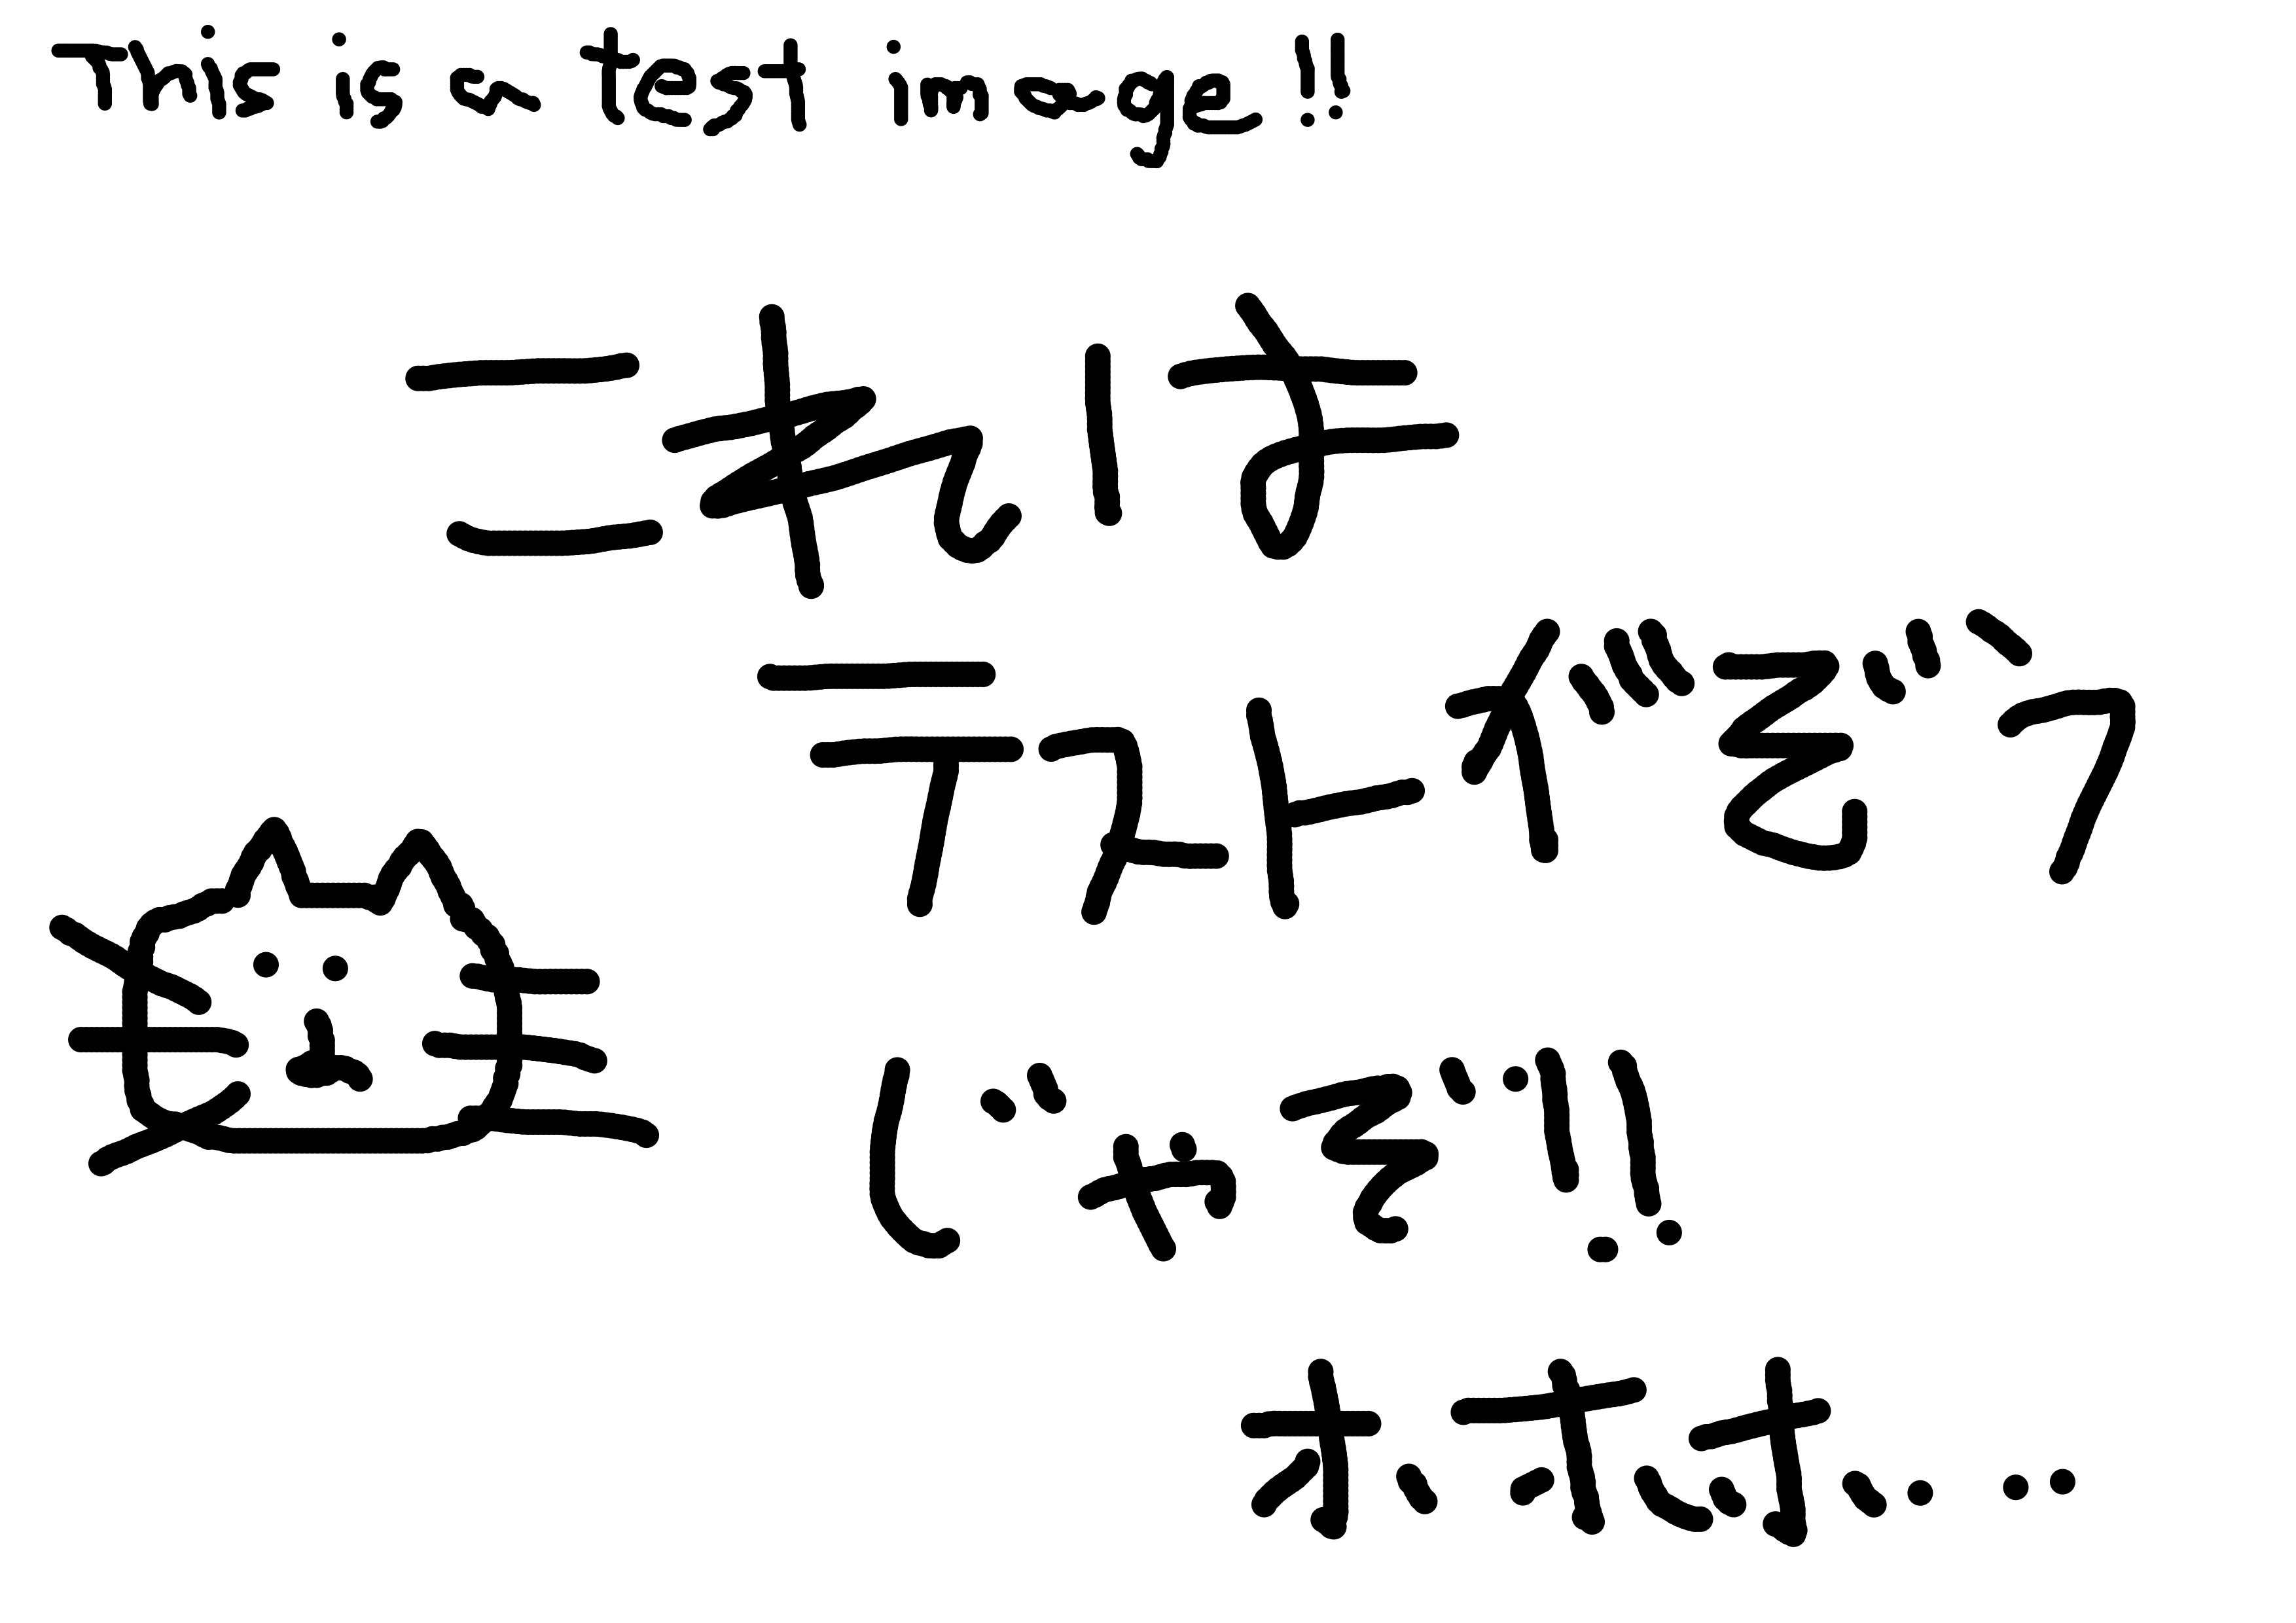 This is a test image!!
これは
テストがぞう
じゃぞ!!
ホホホ...